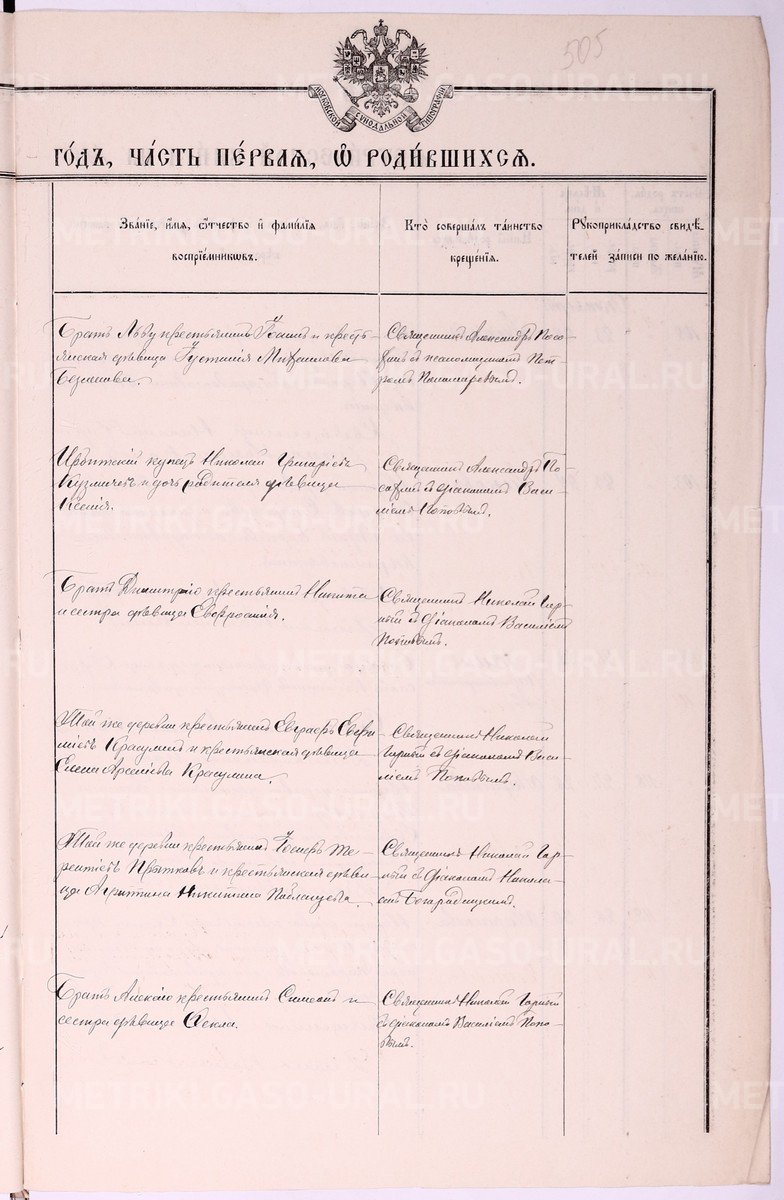 505
МОСКОВСКОЙ СѴНОДАЛЬНОЙ ТИПОГРАФІИ
ГО́ДЪ, ЧА́СТЬ ПЕ́РВАЯ, Ѽ РОДИ́ВШИХСЯ.
Зва́нїе, и́мя, ѻ́тчество и҆ фами́лїя
воспрїе́мниковъ.
Кто̀ соверша́лъ та́инство
креще́нїя.
Рꙋкоприкла́дство свидѣ́-
телей за́писи по жела́нїю.
Братъ Льву крестьянинъ Іоаннъ и кресть-
янская дѣвица Іустинія
Священникъ Александръ
съ псаломщикомъ Пет-
ромъ Пономаревымъ.
Ирбитскій купецъ Николай
и дочь родителя дѣвица
Ксенія.
Священникъ Александръ
съ діакономъ Васи-
ліемъ Поповымъ.
Братъ Димитрію крестьянинъ Никита
и сестра дѣвица Евфросинія.
Священникъ Николай Гор-
ный съ діакономъ Василіемъ
Поповымъ.
Той же деревни крестьянинъ Евграфъ
Красулинъ и крестьянская дѣвица
Елена Арсеніева Красулина.
Священникъ Николай
съ діакономъ Васи-
ліемъ Поповымъ.
Той же деревни крестьянинъ Іосифъ Те-
рентіевъ и крестьянская дѣви-
ца Никитина
Священникъ Николай Гор-
ный съ діакономъ Никола-
емъ Богородицкимъ.
Братъ Алексію крестьянинъ Симеонъ и
сестра дѣвица Ѳекла.
Священникъ Николай Горный
съ діакономъ Василіемъ Попо-
вымъ.
METRIKI.GASO-URAL.RU